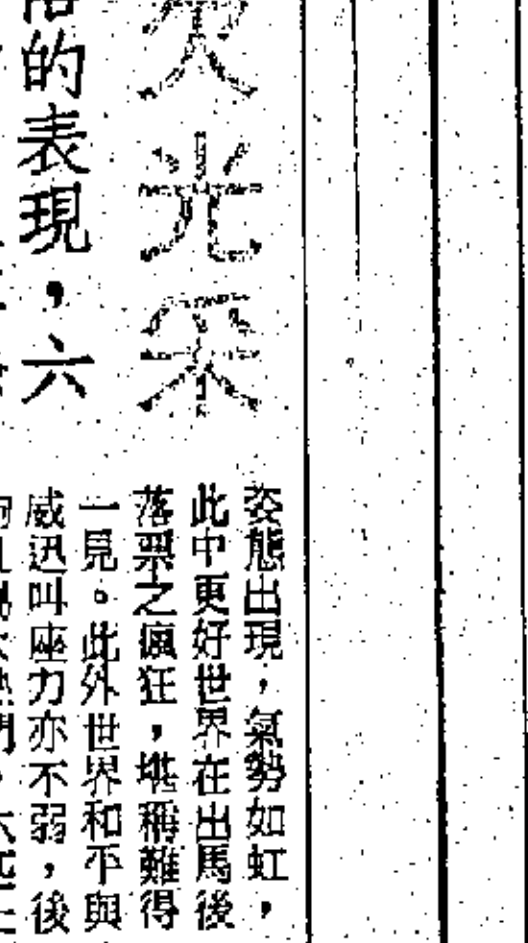 光采
的表現，六
姿態出現，氣勢如虹，
此中更好世界在出馬後
落票之瘋狂，堪稱難得
一見。此外世界和平與
威迅叫座力亦不弱，後